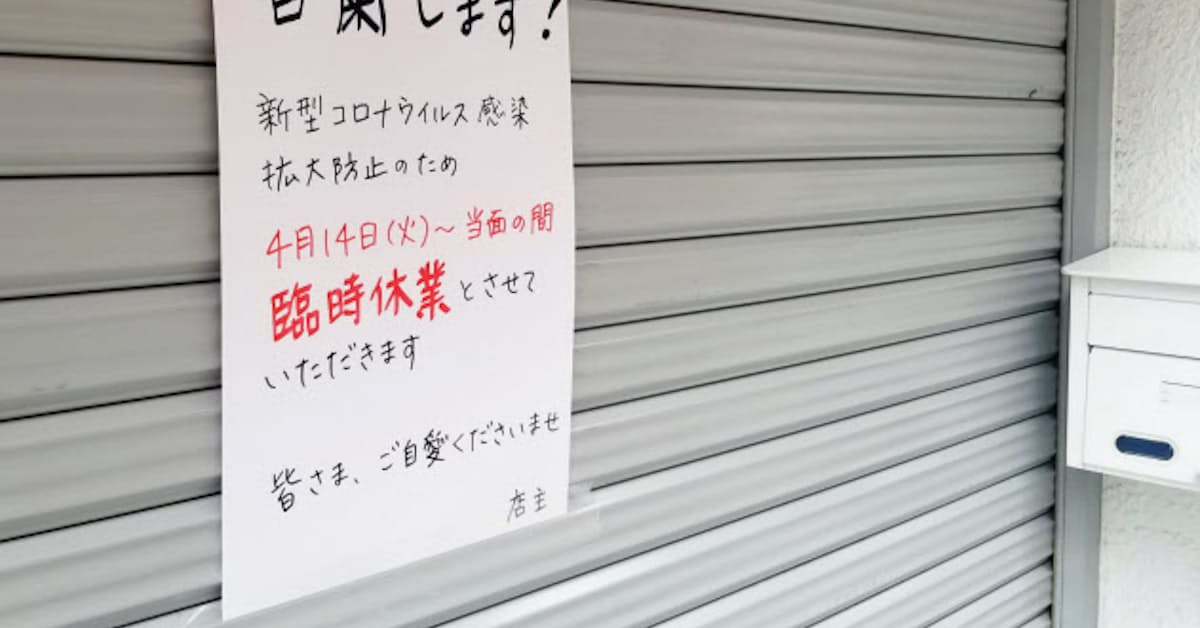 します!
新型コロナウイルス感染
拡大防止のため
4月14日(火)～当面の間
臨時休業とさせて
いただきます
皆さま、ご自愛くださいませ
店主